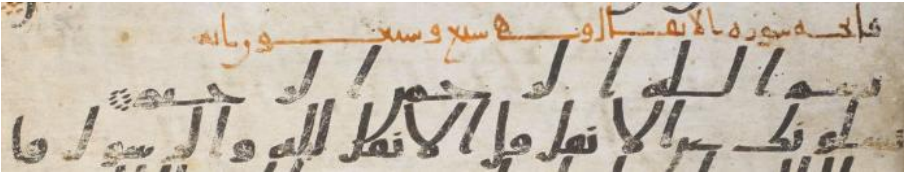 فاتحه سوره الانفال وهى سبع وسبعون ايه
بسم الله الرحمن الرحيم
يسلونك عن الانفل قل الانفل لله والرسول فا